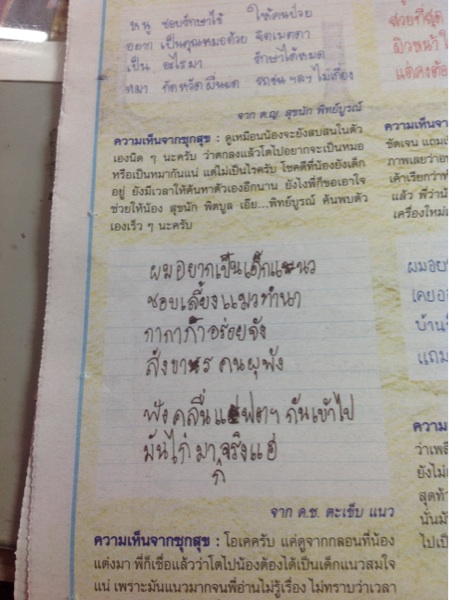 หนู ชอบรักษาไข้ ให้คนป่วย
อยาก เป็นคุณหมอด้วย จิตเมตตา
เป็น อะไรมา รักษาได้หมด
หมา กัดหวัดผื่นมด
จาก ด.ญ. สุขนัก พิทย์บูรณ์
ความเห็นจากซุกสุข : ดูเหมือนน้องจะยังสับสนในตัว
เองนิด ๆ นะครับ ว่าตกลงแล้วโตไปอยากจะเป็นหมอ
หรือเป็นหมากันแน่ แต่ไม่เป็นไรครับ โชคดีที่น้องยังเด็ก
อยู่ ยังมีเวลาให้ค้นหาตัวเองอีกนาน ยังไงพี่ก็ขอเอาใจ
ช่วยให้น้อง สุขนัก พิตบูล เอ๊ย...พิทย์บูรณ์ ค้นพบตัว
เองเร็ว ๆ นะครับ
ผมอยากเป็นเด็กแนว
ชอบเลี้ยงแมวทำนา
กากาก้าอร่อยจัง
สังขาร คนผุพัง
ฟังคลื่น กันเข้าไป
มันไก่ มาก จริงแฮ่
จาก ด.ช. ตะเข็บ แนว
ความเห็นจากซุกสุข : โอเคครับ แค่ดูจากกลอนที่น้อง
แต่งมา พี่ก็เชื่อแล้วว่าโตไปน้องต้องได้เป็นเด็กแนวสมใจ
แน่ เพราะมันแนวมากจนพี่อ่านไม่รู้เรื่อง ไม่ทราบว่าเวลา
สวยที่สุด
ผิวหน้า
แต่คงต้อ
ความเห็นจา
ชัดเจน แถม
ภาพเลยว่า
เค้าเรียกว่า
แล้ว พี่ว่า
เครื่องใหม่
ผมอย
เคย
บ้าน
แถม
ความ
ว่าเพล
ยังไม่
สุดท้า
นั่นมั
ไปเป็